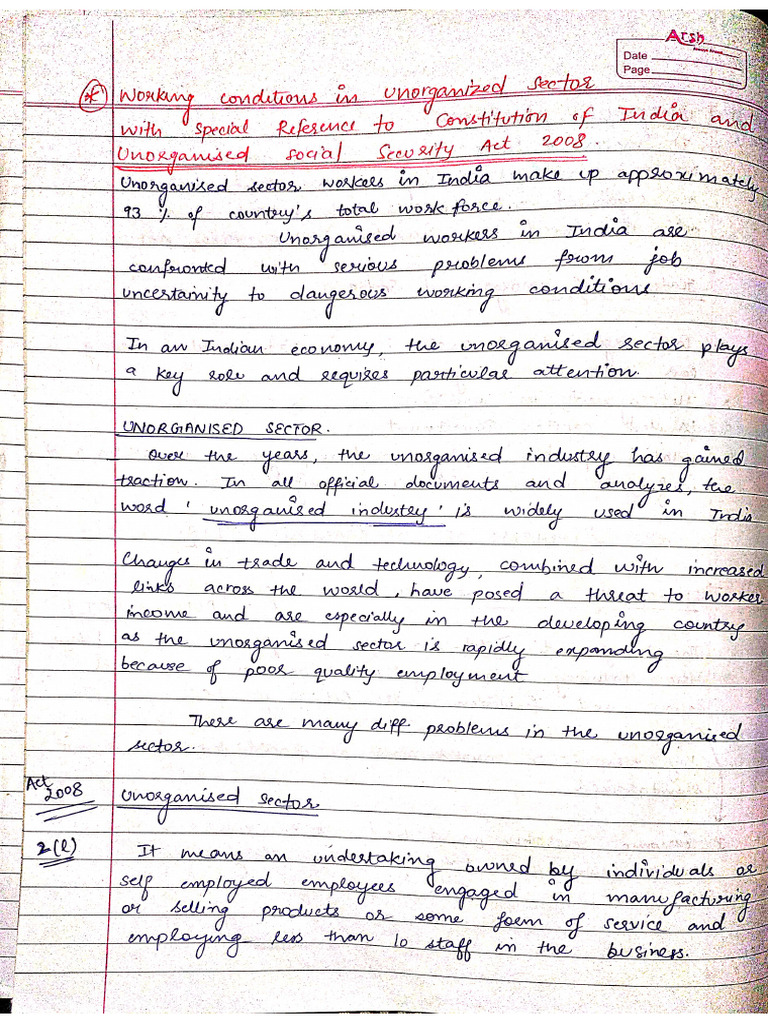 Arsh
Date
Page
Working conditions in unorganized sector
with special Reference to Constitution of India and
Unorganised social Security Act 2008.
Unorganised sector workers in India make up approximately
93 % of country's total work force.
Unorganised workers in India are
confronted with serious problems from job
uncertainity to dangerous working conditions
In an Indian economy, the unorganised sector plays
a key role and requires particular attention.
UNORGANISED SECTOR.
Over the years, the unorganised industry has gained
traction. In all official documents and analyzes, the
word 'unorganised industry' is widely used in India
Changes in trade and technology, combined with increased
links across the world, have posed a threat to worker
income and are especially in the developing country
as the unorganised sector is rapidly expanding
because of poor quality employment
There are many diff. problems in the unorganised
sector.
Act 2008
Unorganised sector
2(l) It means an undertaking owned by individuals or
self employed employees engaged in manufacturing
or selling products or some form of service and
employing less than 10 staff in the business.